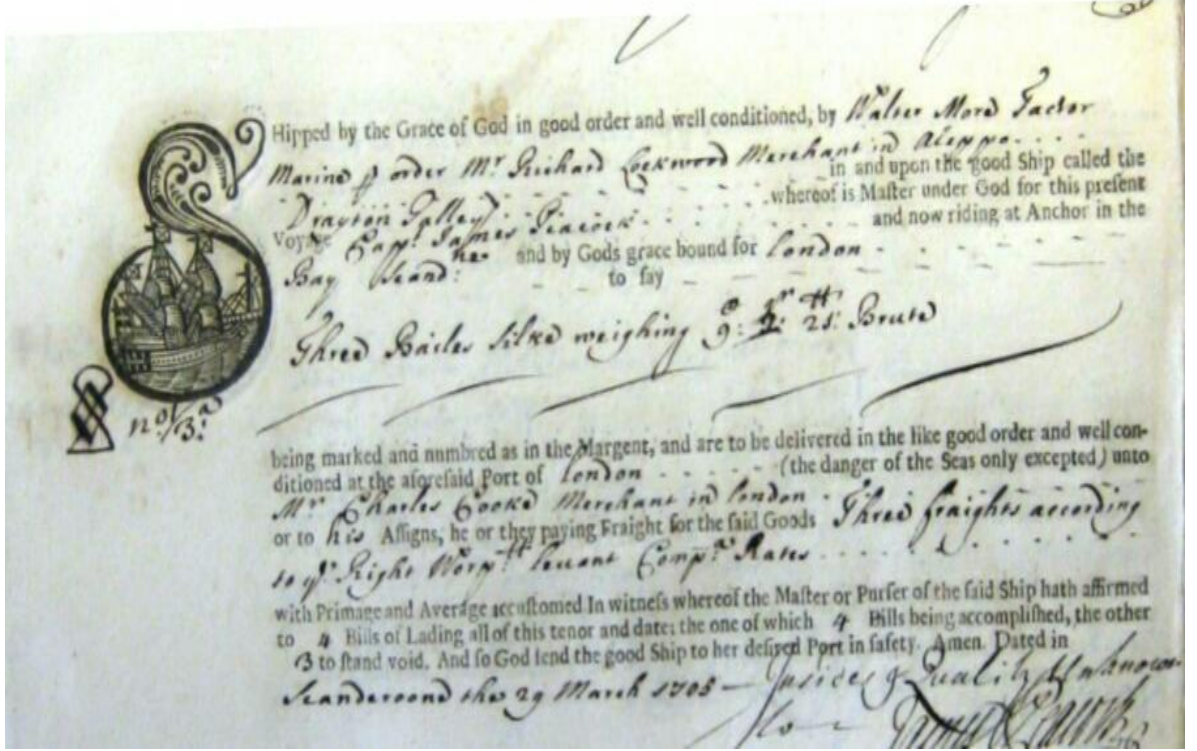 SHipped by the Grace of God in good order and well conditioned, by Walter Mord Factor
Marine p order Mr. Richard Lockwood Merchant in Aleppo....
in and upon the good Ship called the
Drayton Galley whereof is Maſter under God for this preſent
Voyage Capt. James Peacock and now riding at Anchor in the
Bay and by Gods grace bound for London
to ſay
Three Bailes Silke weighing 21: Brute
no. 3
being marked and numbred as in the Margent, and are to be delivered in the like good order and well con-
ditioned at the aforeſaid Port of London (the danger of the Seas only excepted) unto
Mr. Charles Cooke Merchant in London
or to his Aſſigns, he or they paying Fraight for the ſaid Goods Three fraights according
to ye. Right Worpll. Levant Compas. Rates
with Primage and Average accuſtomed In witneſs whereof the Maſter or Purſer of the ſaid Ship hath affirmed
to 4 Bills of Lading all of this tenor and date; the one of which 4 Bills being accompliſhed, the other
3 to ſtand void. And ſo God ſend the good Ship to her deſired Port in ſafety. Amen. Dated in
Scanderoond the 29 March 1705 — Insides & Quality Unknown
to James Peacock